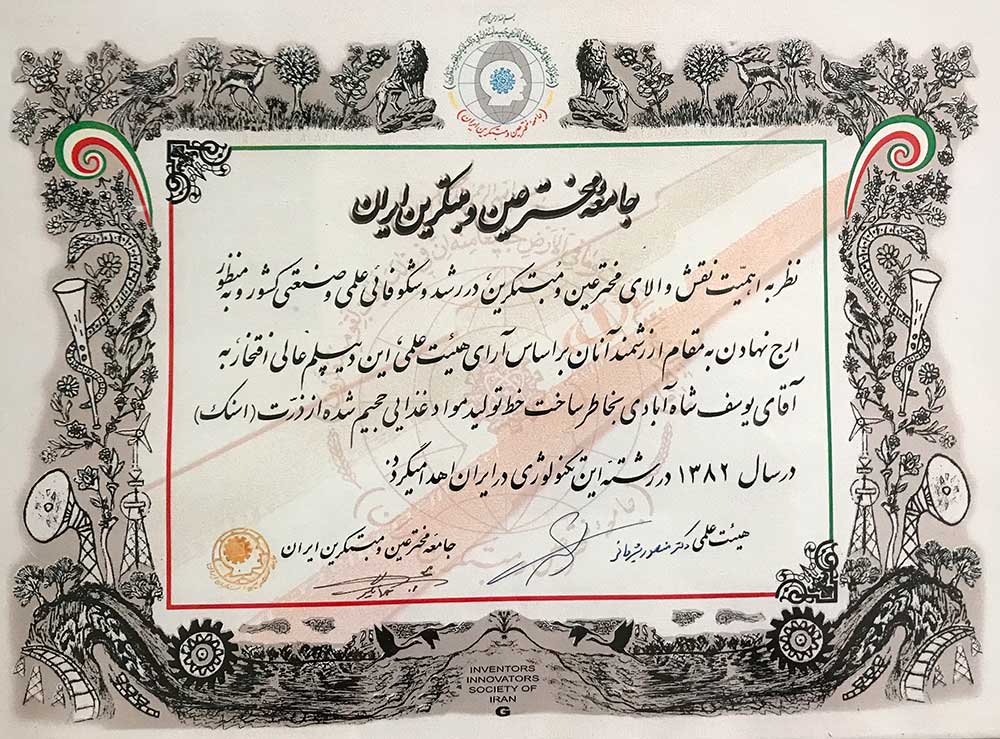 بسم الله الرحمن الرحیم
جامعه مخترعین و مبتکرین ایران
جامعه مخترعین و مبتکرین ایران
نظر به اهمیّت نقش والای مخترعین و مبتکرین، در رشد و شکوفائی علمی و صنعتی کشور و به منظور
ارج نهادن به مقام ارزشمند آنان بر اساس آرای هیئت علمی، این دیپلم عالی افتخار به
آقای یوسف شاه آبادی بخاطر ساخت خط تولید مواد غذایی حجیم شده از ذرّت (اسنک)
در سال ۱۳۸۲ در رشته این تکنولوژی در ایران اهدا میگردد
هیئت علمی دکتر منصور
جامعه مخترعین و مبتکرین ایران
INVENTORS
INNOVATORS
SOCIETY OF
IRAN
G